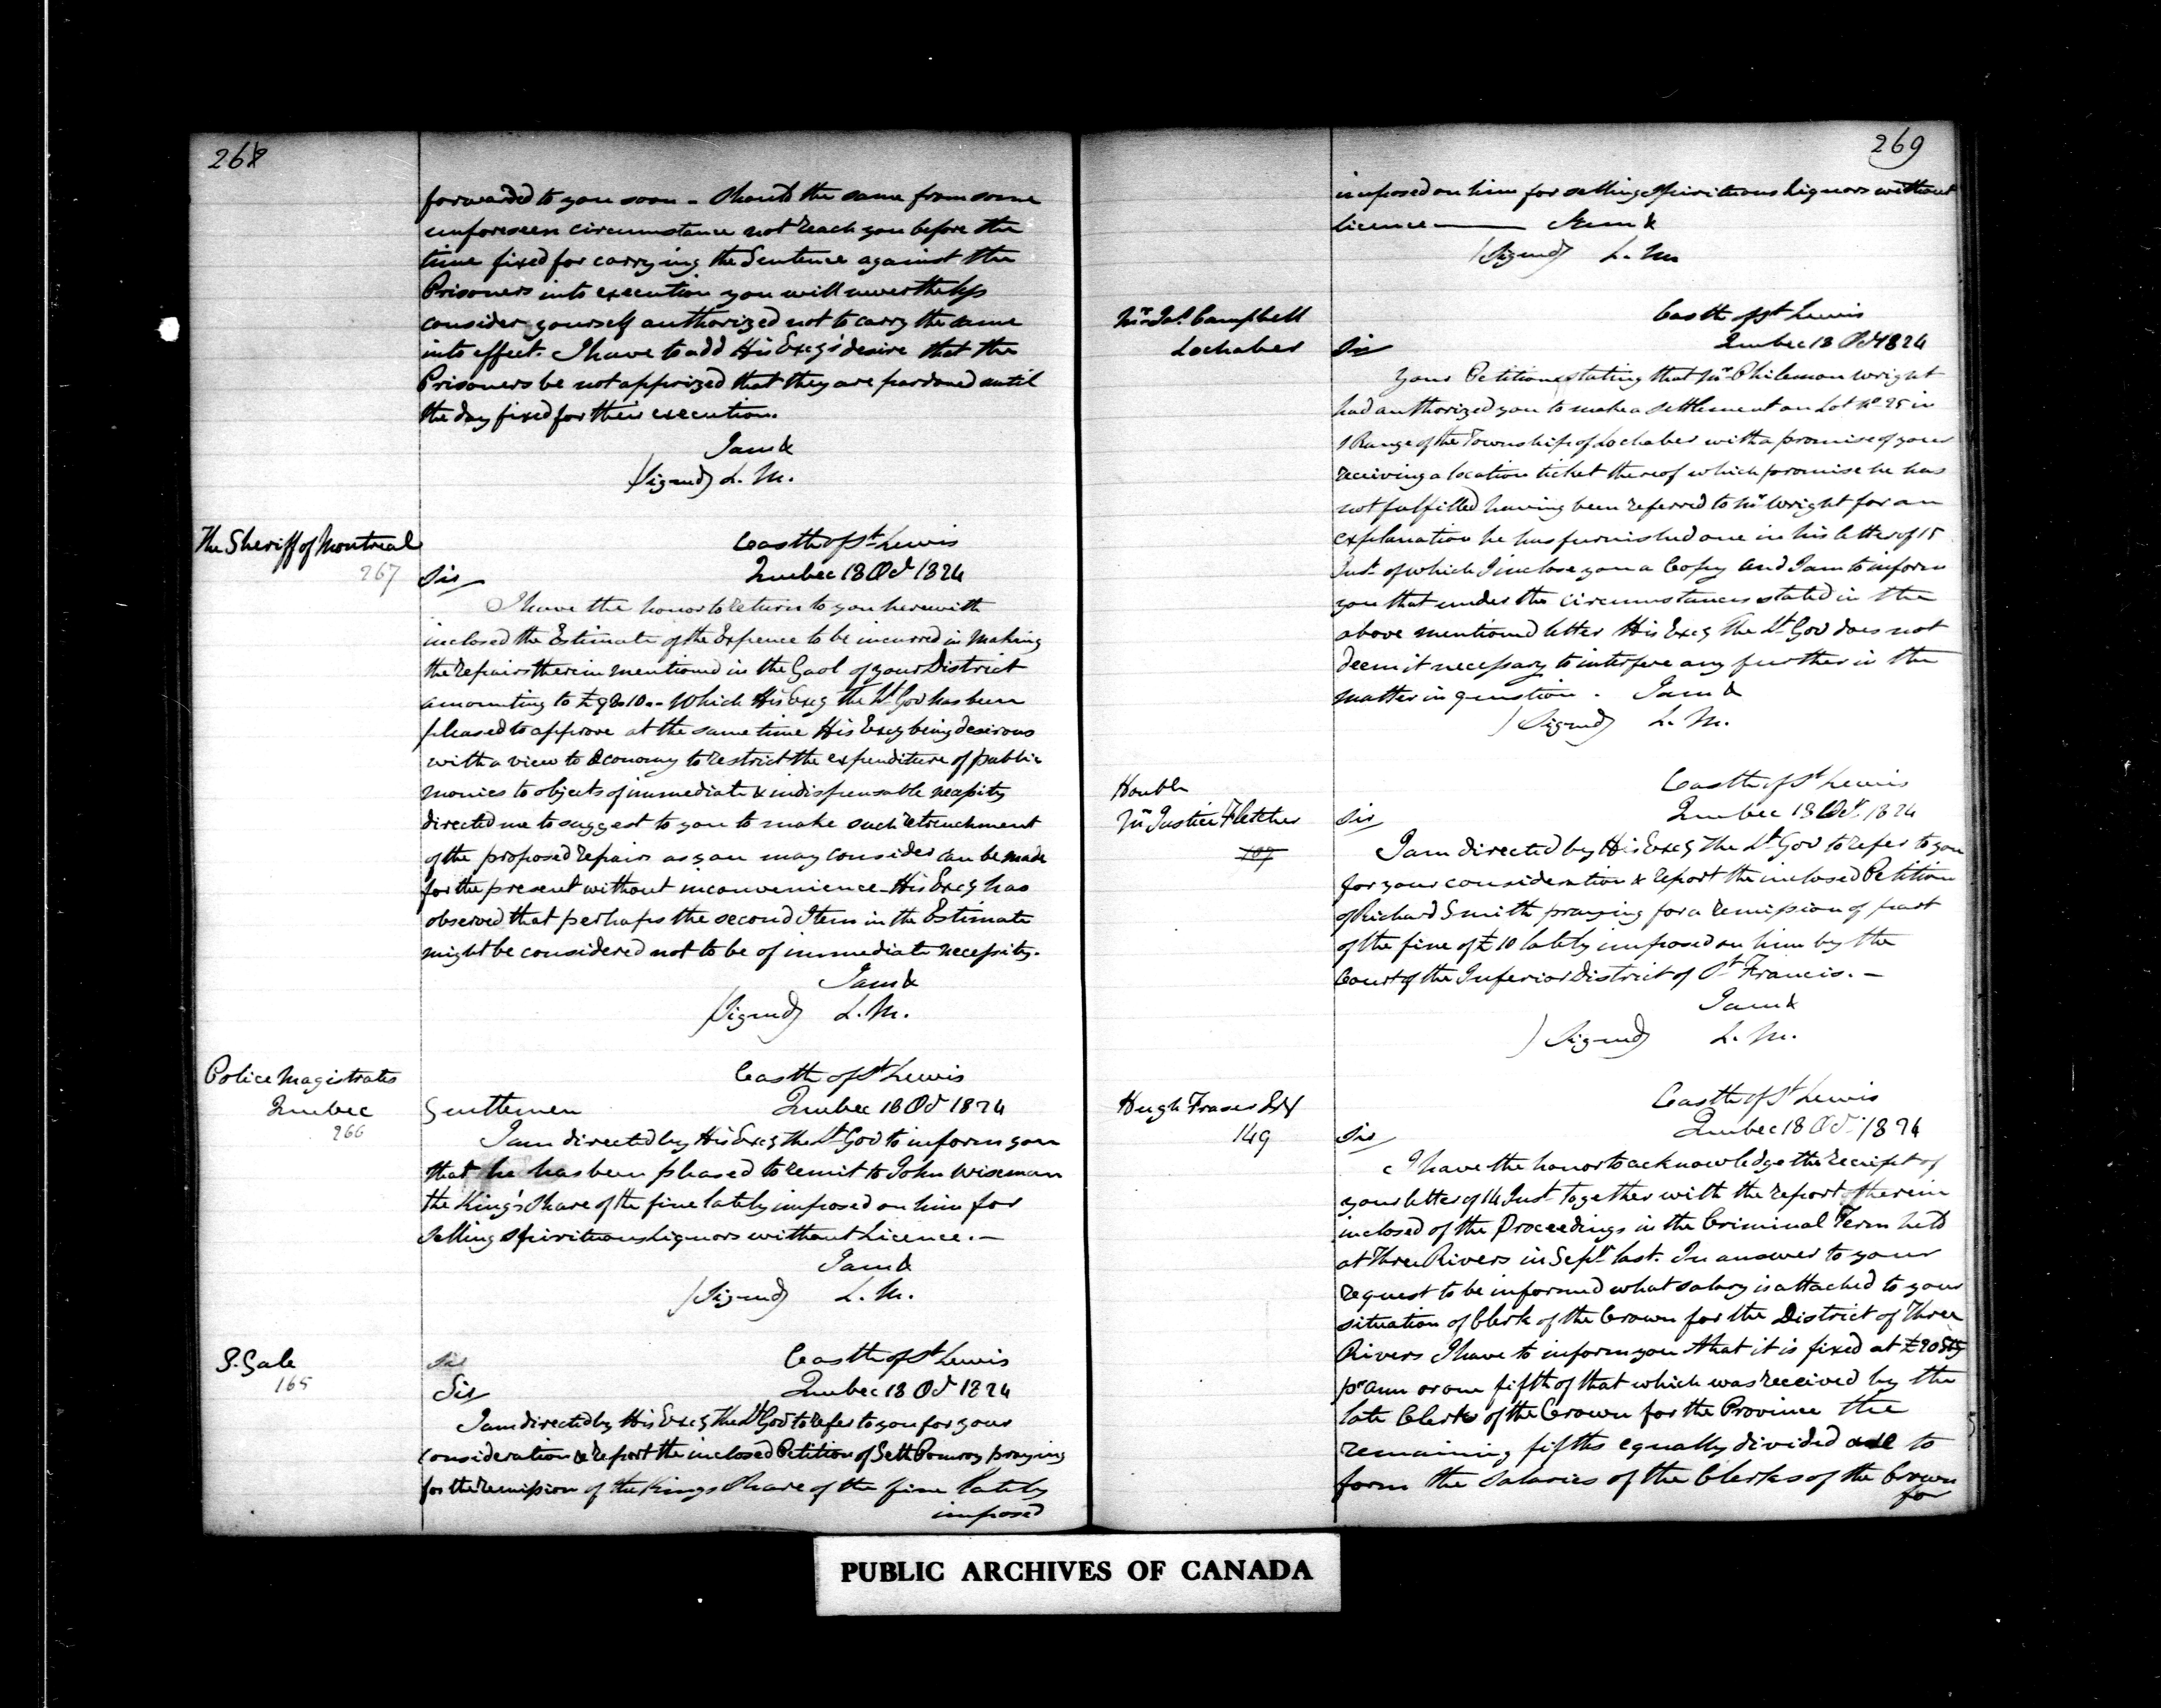 268
forwarded to you soon - Should the same from some
unforeseen circumstance not reach you before the
time fixed for carrying the Sentence against the
Prisoners into execution you will nevertheless
consider yourself authorized not to carry the same
into effect. I have to add His Excy's desire that the
Prisoners be not apprized that they are pardoned until
the day fixed for their execution.
I am &
(Signed) L. M.
The Sheriff of Montreal
267
Castle of St Lewis
Sir Quebec 18 Oct 1824
I have the honor to return to you herewith
inclosed the Estimate of the Expence to be incurred in making
the repairs therein mentioned in the Gaol of your District
amounting to which His Excy the Lt Gov has been
pleased to approve at the same time His Excy being desirous
with a view to Economy to restrict the expenditure of public
monies to objects of immediate & indispensable necessity
directed me to suggest to you to make such retrenchment
of the proposed repairs as you may consider can be made
for the present without inconvenience. His Excy has
observed that perhaps the second Item in the Estimate
might be considered not to be of immediate necessity.
I am &
(Signed) L. M.
Police Magistrates
Quebec
266
Castle of St Lewis
Gentlemen Quebec 18 Oct 1824
I am directed by His Excy the Lt Gov to inform you
that he has been pleased to remit to John Wiseman
the King's Share of the fine lately imposed on him for
selling Spirituous Liquors without Licence. -
I am &
(Signed) L. M.
S. Gale
165
Sir Castle of St Lewis
Sir Quebec 18 Oct 1824
I am directed by His Excy the Lt Gov to refer to you for your
consideration & report the inclosed Petition of Seth Pomroy praying
for the remission of the Kings Share of the fine lately
imposed
269
imposed on him for selling Spirituous Liquors without
licence I am &
(Signed) L. M
Mr Jas Campbell
Lochaber
Castle of St Lewis
Sir Quebec 18 Oct 1824
Your Petition stating that Mr Philemon Wright
had authorized you to make a settlement on Lot No 25 in
1 Range of the Township of Lochaber with a promise of your
receiving a location ticket thereof which promise he has
not fulfilled having been referred to Mr Wright for an
explanation he has furnished one in his letter of 15
Inst of which I inclose you a Copy and I am to inform
you that under the circumstances stated in the
above mentioned letter His Excy the Lt Gov does not
deem it necessary to interfere any further in the
matter in question. I am &
(Signed) L. M.
Honble
Mr Justice Fletcher
107
Castle of St Lewis
Sir Quebec 18 Oct 1824
I am directed by His Excy the Lt Gov to refer to you
for your consideration & report the inclosed Petition
of Richard Smith praying for a remission of part
of the fine of £10 lately imposed on him by the
Court of the Inferior District of St Francis. -
I am &
(Signed) L. M.
Hugh Fraser
149
Castle of St Lewis
Sir Quebec 18 Oct 1824
I have the honor to acknowledge the receipt of
your letter of 14 Inst together with the report therein
inclosed of the Proceedings in the Criminal Term held
at Three Rivers in Sept last. In answer to your
request to be informed what salary is attached to your
situation of Clerk of the Crown for the District of Three
Rivers I have to inform you that it is fixed at £20 Stg
pr Ann or one fifth of that which was received by the
late Clerk of the Crown for the Province the
remaining fifths equally divided to
form the Salaries of the Clerks of the Crown
for
PUBLIC ARCHIVES OF CANADA